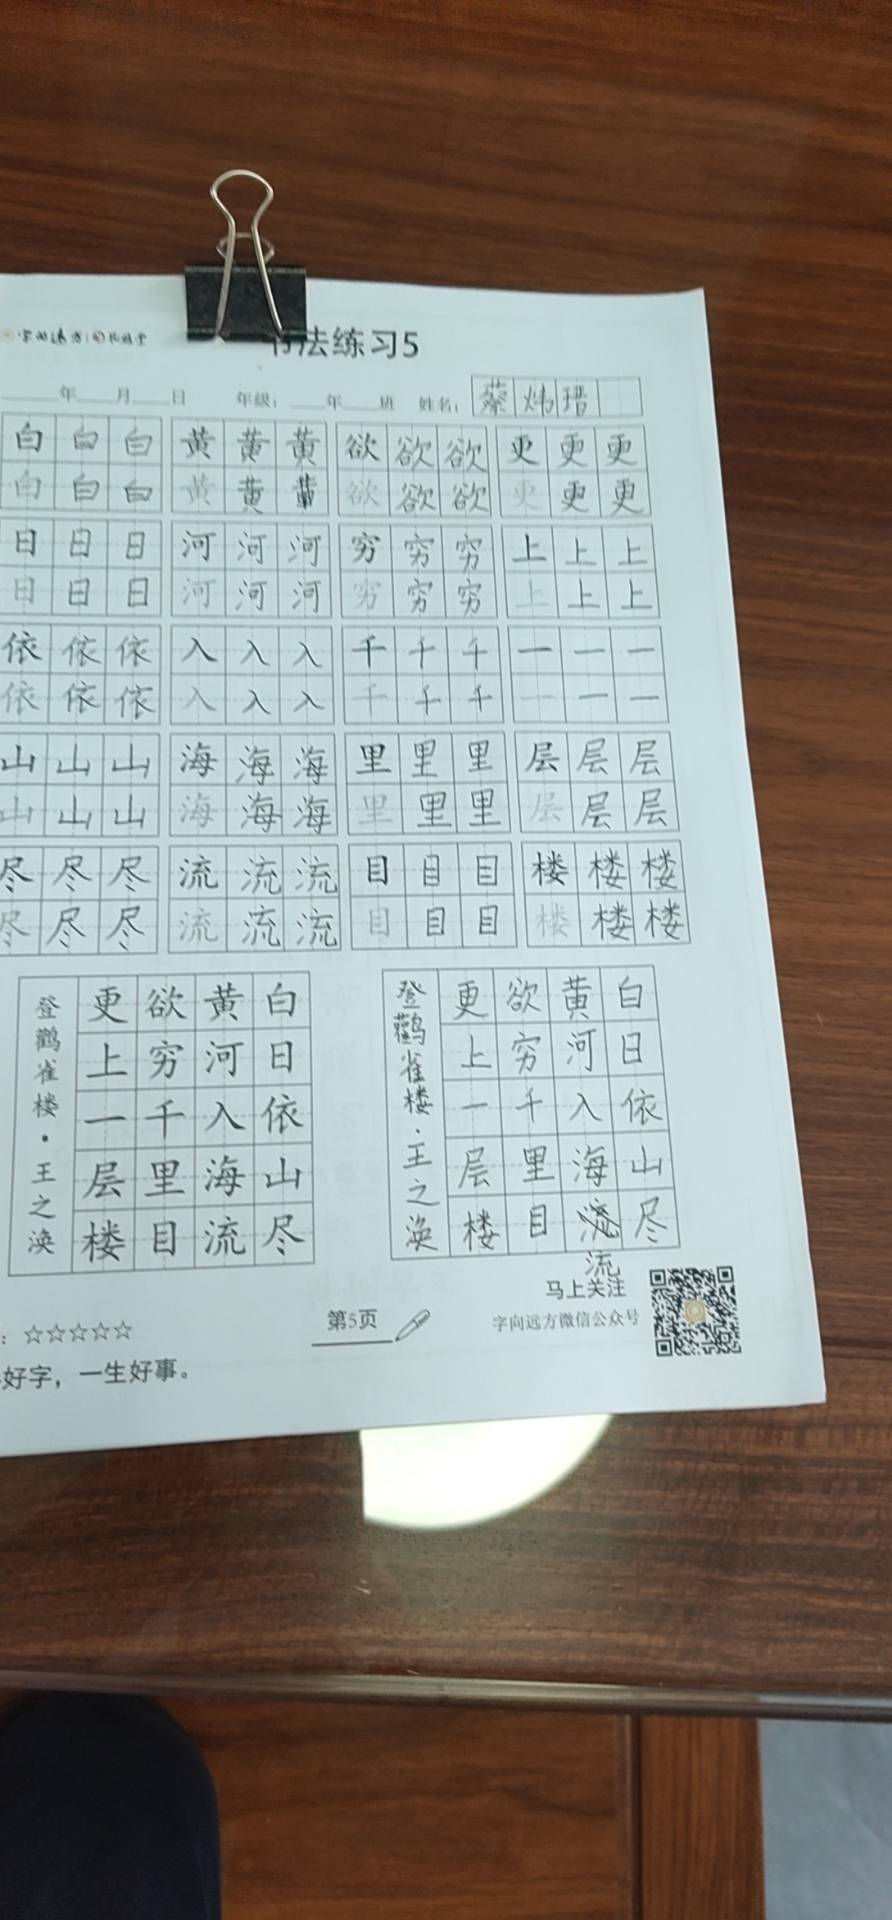 字向远方
法练习5
年 月 日 年级: 年 班 姓名: 蔡炜瑨
白白白 黄黄黄 欲欲欲 更更更
白白白 黄黄黄 欲欲欲 更更更
日日日 河河河 穷穷穷 上上上
日日日 河河河 穷穷穷 上上上
依依依 入入入 千千千 一一一
依依依 入入入 千千千 一一一
山山山 海海海 里里里 层层层
山山山 海海海 里里里 层层层
尽尽尽 流流流 目目目 楼楼楼
尽尽尽 流流流 目目目 楼楼楼
白日依山尽
黄河入海流
欲穷千里目
更上一层楼
登鹳雀楼·王之涣
白日依山尽
黄河入海流
欲穷千里目
更上一层楼
登鹳雀楼·王之涣
流
马上关注
字向远方微信公众号
第5页
: ☆☆☆☆☆
好字，一生好事。